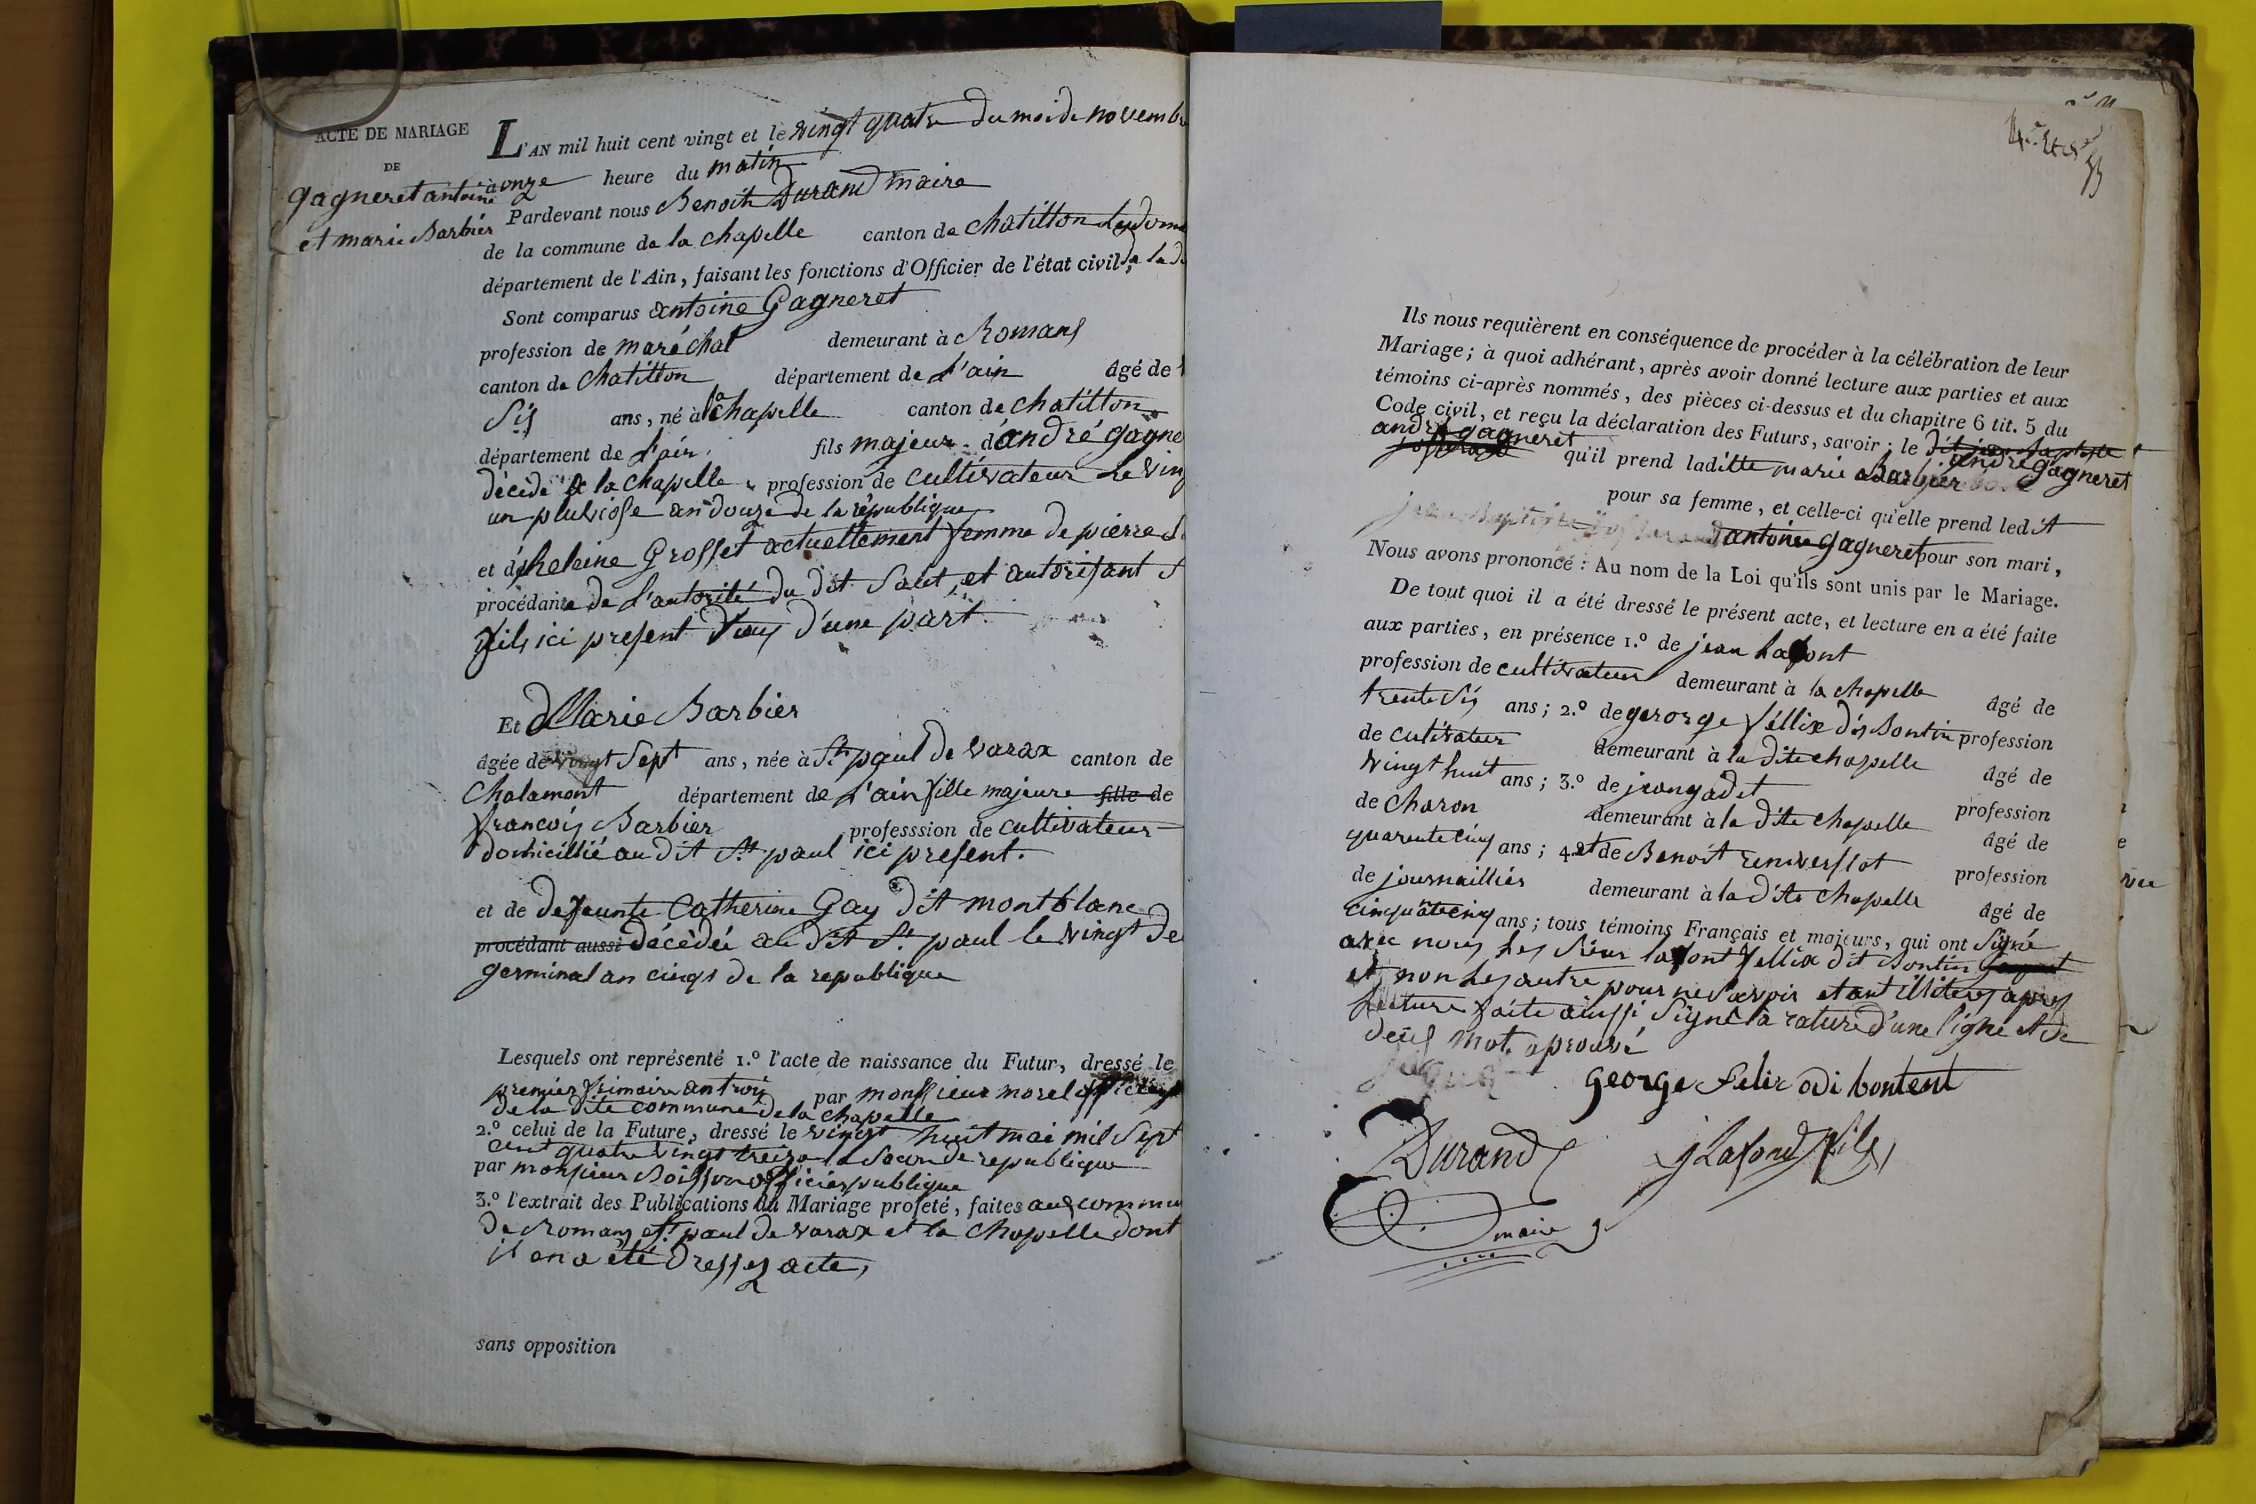 ACTE DE MARIAGE
DE
gagneret antoine
et marie Barbier
L'AN mil huit cent vingt et le vingt quatre du moi de novembre
à onze heure du matin
Pardevant nous Benoit Durand maire
de la commune de la chapelle canton de chatillon
département de l'Ain, faisant les fonctions d'Officier de l'état civil,
Sont comparus antoine Gagneret
profession de maréchal demeurant à Romans
canton de chatillon département de L'ain âgé de
Sis ans, né à la chapelle canton de chatillon
département de L'ain fils majeur d'andré gagne
décédé a la chapelle profession de cultivateur Le ving
un pluviose an douze de la république
et d'heleine Grosset actuellement femme de pierre
procédante de L'autorité du dit Saut, et autorisant
fils ici present d'une part
Et Marie Barbier
âgée de vingt Sept ans, née à St paul de varax canton de
Chalamont département de L'ain fille majeure fille de
francois Barbier professsion de cultivateur
domicillié au dit St paul ici present.
et de defeunte Catherine Gay dit montblanc
procédant aussi décédée au dit St paul le vingt de
germinal an cinqs de la republique
Lesquels ont représenté 1.º l'acte de naissance du Futur, dressé le
premier frimaire an trois par monssieur morel officier
de la dite commune de la chapelle
2.º celui de la Future, dressé le vingt huit mai mil Sept
cent quatre vingt treize la Seconde republique
par monsieur Boisson officier publique
3.º l'extrait des Publications du Mariage projeté, faites aux commu
de Romans St paul de varax et la chapelle dont
il en a été dresses acte,
sans opposition
Ils nous requièrent en conséquence de procéder à la célébration de leur
Mariage; à quoi adhérant, après avoir donné lecture aux parties et aux
témoins ci-après nommés, des pièces ci-dessus et du chapitre 6 tit. 5 du
Code civil, et reçu la déclaration des Futurs, savoir: le dit jean Baptiste
andré gagneret andré gagneret
qu'il prend laditte marie Barbier
pour sa femme, et celle-ci qu'elle prend ledit
jean Baptiste antoine gagneret pour son mari,
Nous avons prononcé: Au nom de la Loi qu'ils sont unis par le Mariage.
De tout quoi il a été dressé le présent acte, et lecture en a été faite
aux parties, en présence 1.º de jean Lafont
profession de cultivateur demeurant à la chapelle âgé de
trente Sis ans; 2.º de gerorgeféllix dis Bontin profession
de cutivateur demeurant à la dite chapelle âgé de
vingt huit ans; 3.º de jean gadet profession
de charon demeurant à la dite chapelle âgé de
quarente cinq ans; 4.º et de Benoit renverssot profession
de journaillier demeurant à la dite chapelle âgé de
cinquäte cinq ans; tous témoins Français et majeurs, qui ont signé
avec nous Les Sieur lafont fellix dit Bontin
et non Les autre pour ne Savoir etant illiteres apres
Lecture faite ainssi Signé la rature d'une ligne et de
deux mot aprouvé
george Felix di bontent
Durand
J Lafond fils
maire